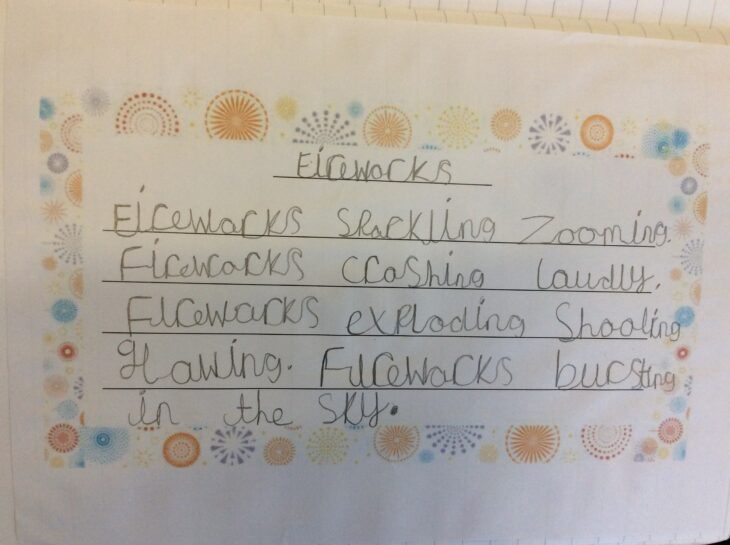 Fireworks
Fireworks sparkling zooming.
Fireworks crashing loudly.
Fireworks exploding shooting
glowing. Fireworks bursting
in the sky.